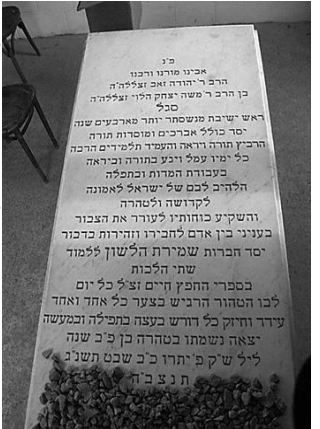 פ״נ
אבינו מורנו ורבנו
הרב ר׳ יהודה זאב זצללה״ה
בן הרב ר׳ משה יצחק הלוי זצללה״ה
סגל
ראש ישיבת מנשסתר יותר מארבעים שנה
יסד כולל אברכים ומוסדות תורה
הרביץ תורה ויראה והעמיד תלמידים הרבה
כל ימיו עמל ויגע בתורה וביראה
בעבודת המדות ובתפלה
הלהיב לבם של ישראל לאמונה
לקדושה ולטהרה
והשקיע כוחותיו לעורר את הצבור
בעניני בין אדם לחבירו וזהירות בדבור
יסד חברות שמירת הלשון ללמוד
שתי הלכות
בספרי החפץ חיים זצ״ל כל יום
לבו הטהור הרגיש בצער כל אחד ואחד
עידד וחיזק כל דורש בעצה בתפילה ובמעשה
יצאה נשמתו בטהרה בן פ״ב שנה
ליל ש״ק פ׳ יתרו כ״ב שבט תשנ״ג
ת נ צ ב ״ ה